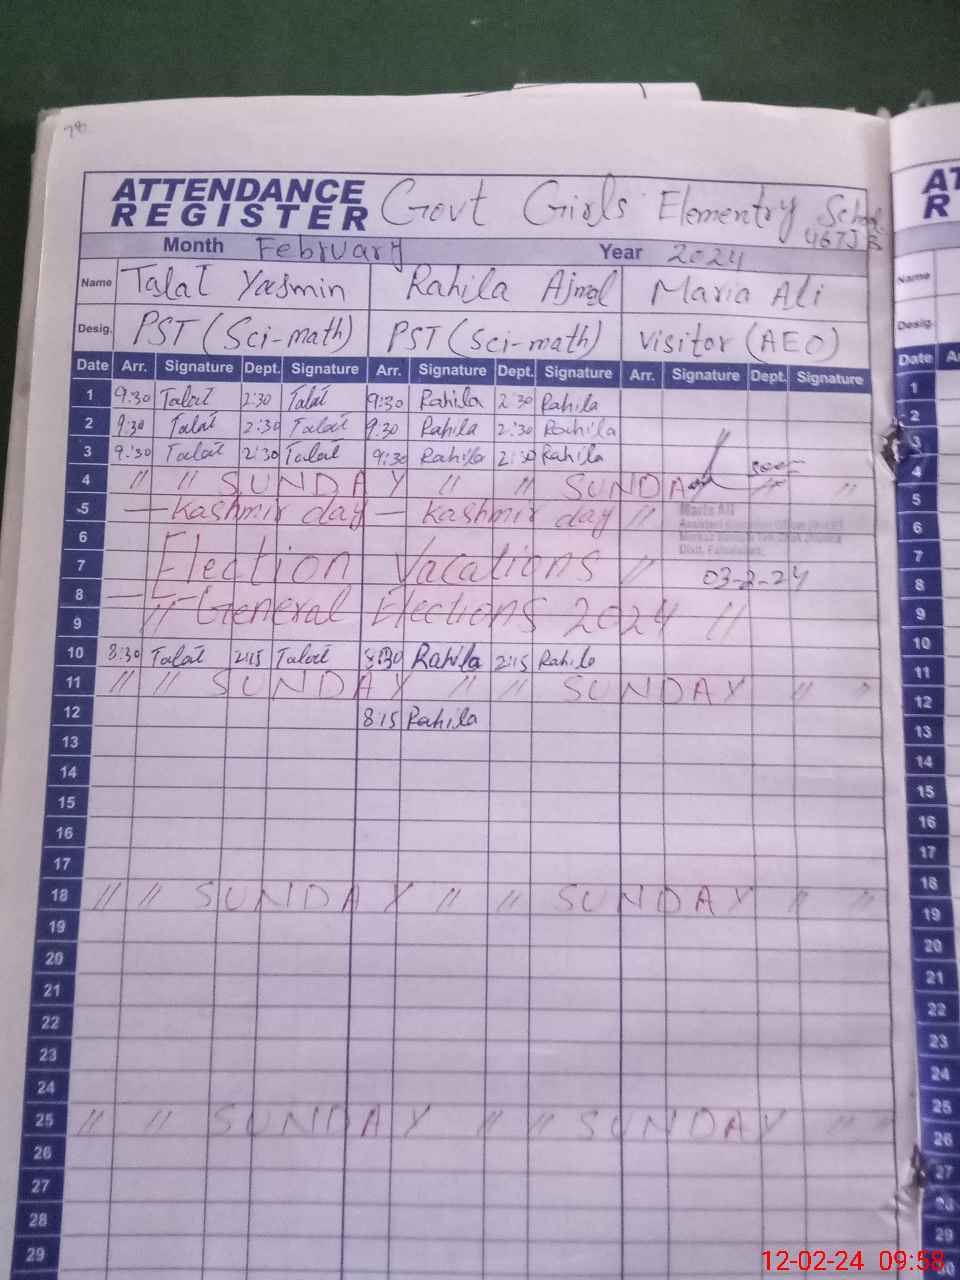 78
ATTENDANCE REGISTER Govt Girls Elementry School
467JB
Month February Year 2024
Name Talat Yasmin Rahila Ajmal Maria Ali
Desig. PST (Sci-math) PST (Sci-math) Visitor (AEO)
Date Arr. Signature Dept. Signature Arr. Signature Dept. Signature Arr. Signature Dept. Signature
1 9:30 Talat 2:30 Talat 9:30 Rahila 2:30 Rahila
2 9:30 Talat 2:30 Talat 9:30 Rahila 2:30 Rahila
3 9:30 Talat 2:30 Talat 9:30 Rahila 2:30 Rahila
4 " " SUNDAY " " SUNDA " "
5 — Kashmir day — Kashmir day "
Maria Ali
6
7 Election Vacations " 03-2-24
8
9 " General Elections 2024 "
10 8:30 Talat 2:15 Talat 8:30 Rahila 2:15 Rahila
11 " " SUNDAY " " SUNDAY " "
12 8:15 Rahila
13
14
15
16
17
18 " " SUNDAY " " SUNDAY " "
19
20
21
22
23
24
25 " " SUNDAY " " SUNDAY " "
26
27
28
29
AT
R
Name
Desig.
Date
1
2
3
4
5
6
7
8
9
10
11
12
13
14
15
16
17
18
19
20
21
22
23
24
25
26
27
28
29
30
12-02-24 09:58